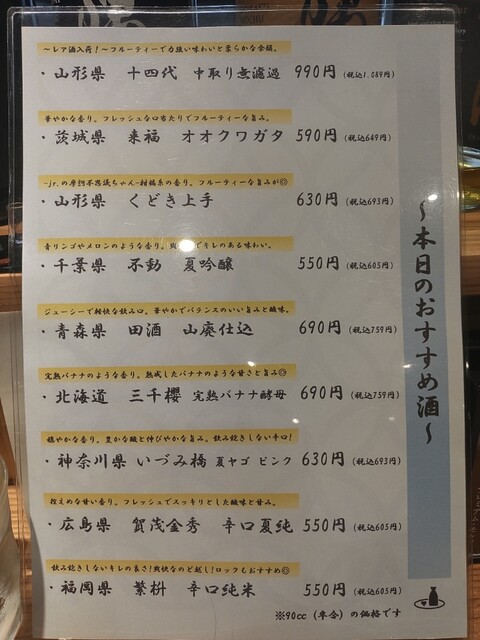 ～本日のおすすめ酒～
～レア酒入荷！～フルーティーで力強い味わいと柔らかな余韻。
・山形県 十四代 中取り無濾過 990円(税込1,089円)
華やかな香り。フレッシュな口当たりでフルーティーな旨み。
・茨城県 来福 オオクワガタ 590円(税込649円)
-Jr.の摩訶不思議ちゃん-柑橘系の香り。フルーティーな旨みが◎
・山形県 くどき上手 630円(税込693円)
青リンゴやメロンのような香り。爽やかでキレのある味わい。
・千葉県 不動 夏吟醸 550円(税込605円)
ジューシーで軽快な飲み口。華やかでバランスのいい旨みと酸味。
・青森県 田酒 山廃仕込 690円(税込759円)
完熟バナナのような香り。熟成したバナナのような甘さと旨み◎
・北海道 三千櫻 完熟バナナ酵母 690円(税込759円)
穏やかな香り。豊かな酸と伸びやかな旨み。飲み飽きしない辛口!
・神奈川県 いづみ橋 夏ヤゴ ピンク 630円(税込693円)
控えめな甘い香り。フレッシュでスッキリとした酸味と甘み。
・広島県 賀茂金秀 辛口夏純 550円(税込605円)
飲み飽きしないキレの良さ!爽快なのど越し!ロックもおすすめ◎
・福岡県 繁枡 辛口純米 550円(税込605円)
※90cc(半合)の価格です